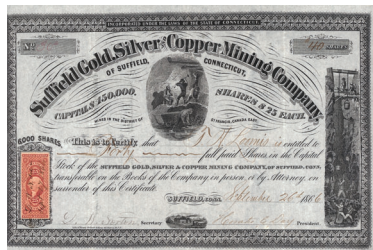 INCORPORATED UNDER THE LAWS OF THE STATE OF CONNECTICUT.
No
40 SHARES
Suffield Gold Silver and Copper Mining Company,
OF SUFFIELD, CONNECTICUT,
CAPITAL $150,000. SHARES $25 EACH.
MINES IN THE DISTRICT OF ST FRANCIS, CANADA EAST.
6000 SHARES
This is to Certify that is entitled to
Forty full paid Shares in the Capital
Stock of the SUFFIELD GOLD, SILVER & COPPER MINING COMPANY, OF SUFFIELD, CONN.
transferable on the Books of the Company, in person, or by Attorney, on
surrender of this Certificate.
SUFFIELD, CONN. September 26th 1866
Secretary President.